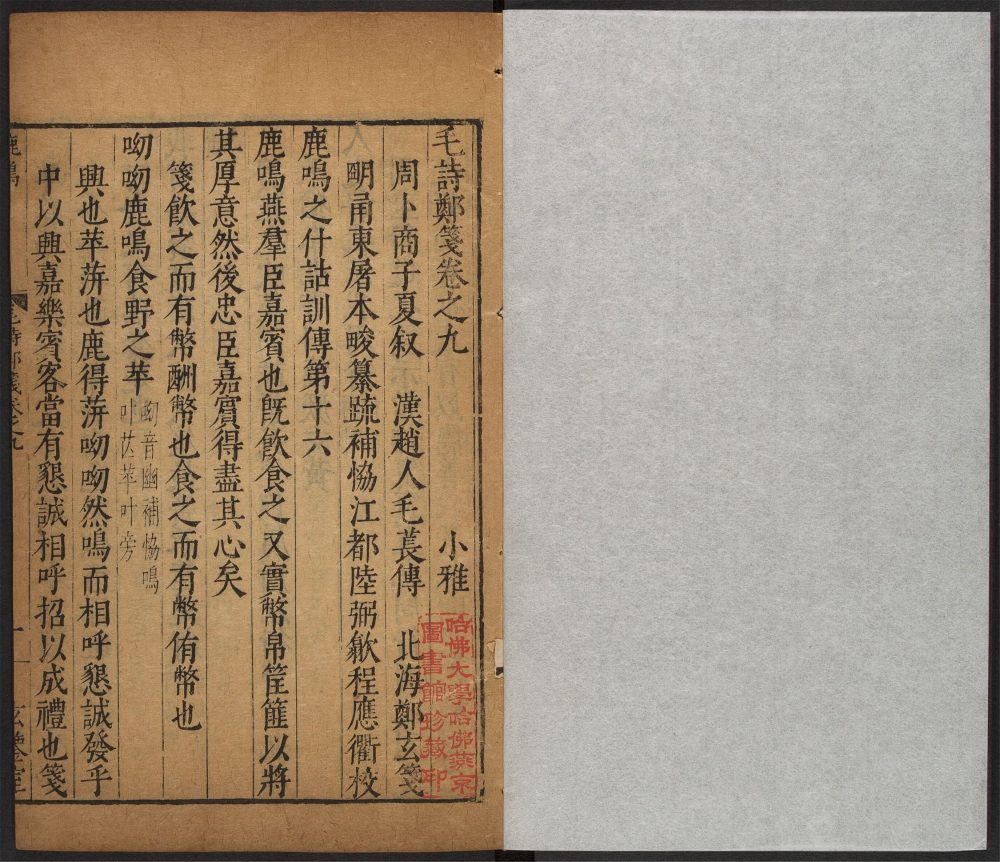 毛詩鄭箋卷之九　小雅
周卜商子夏叙　漢趙人毛萇傳　北海鄭玄箋
明甬東屠本畯纂疏補恊江都陸弼歙程應衢校
鹿鳴之什詁訓傳第十六
鹿鳴燕羣臣嘉賓也旣飲食之又實幣帛筐篚以將
其厚意然後忠臣嘉賓得盡其心矣
箋飲之而有幣酬幣也食之而有幣侑幣也
呦呦鹿鳴食野之苹
呦音幽補恊鳴
叶芒苹叶旁
興也苹蓱也鹿得蓱呦呦然鳴而相呼懇誠發乎
中以興嘉樂賓客當有懇誠相呼招以成禮也箋
鹿鳴
毛詩鄭箋卷之九
一
玄鑒室
哈佛大學哈佛燕京
圖書館珍藏印